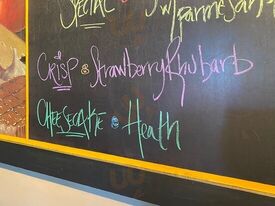 SPECIAL w/ parmesan
CRiSP @ Strawberry Rhubarb
CHEESECAKE @ Heath